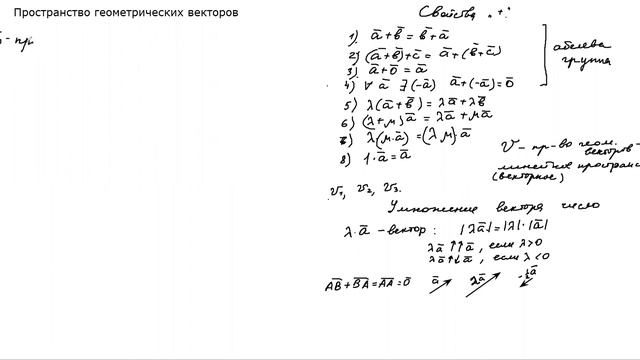 Пространство геометрических векторов
- пр
Свойства "+"
1) a̅ + b̅ = b̅ + a̅
2) (a̅ + b̅) + c̅ = a̅ + (b̅ + c̅)
3) a̅ + 0̅ = a̅
4) ∀ a̅ ∃ (-a̅) a̅ + (-a̅) = 0̅
абелева
группа
5) λ(a̅ + b̅) = λa̅ + λb̅
6) (λ + μ)a̅ = λa̅ + μa̅
7) λ(μ·a̅) = (λμ)a̅
8) 1·a̅ = a̅
V - пр-во геом.
векторов -
линейное простран
(векторное)
V₁, V₂, V₃.
Умножение вектора число
λ·a̅ - вектор: |λa̅| = |λ|·|a̅|
λa̅ ↑↑ a̅, если λ>0
λa̅ ↑↓ a̅, если λ<0
A̅B̅ + B̅A̅ = A̅A̅ = 0̅ a̅ λa̅ -½a̅